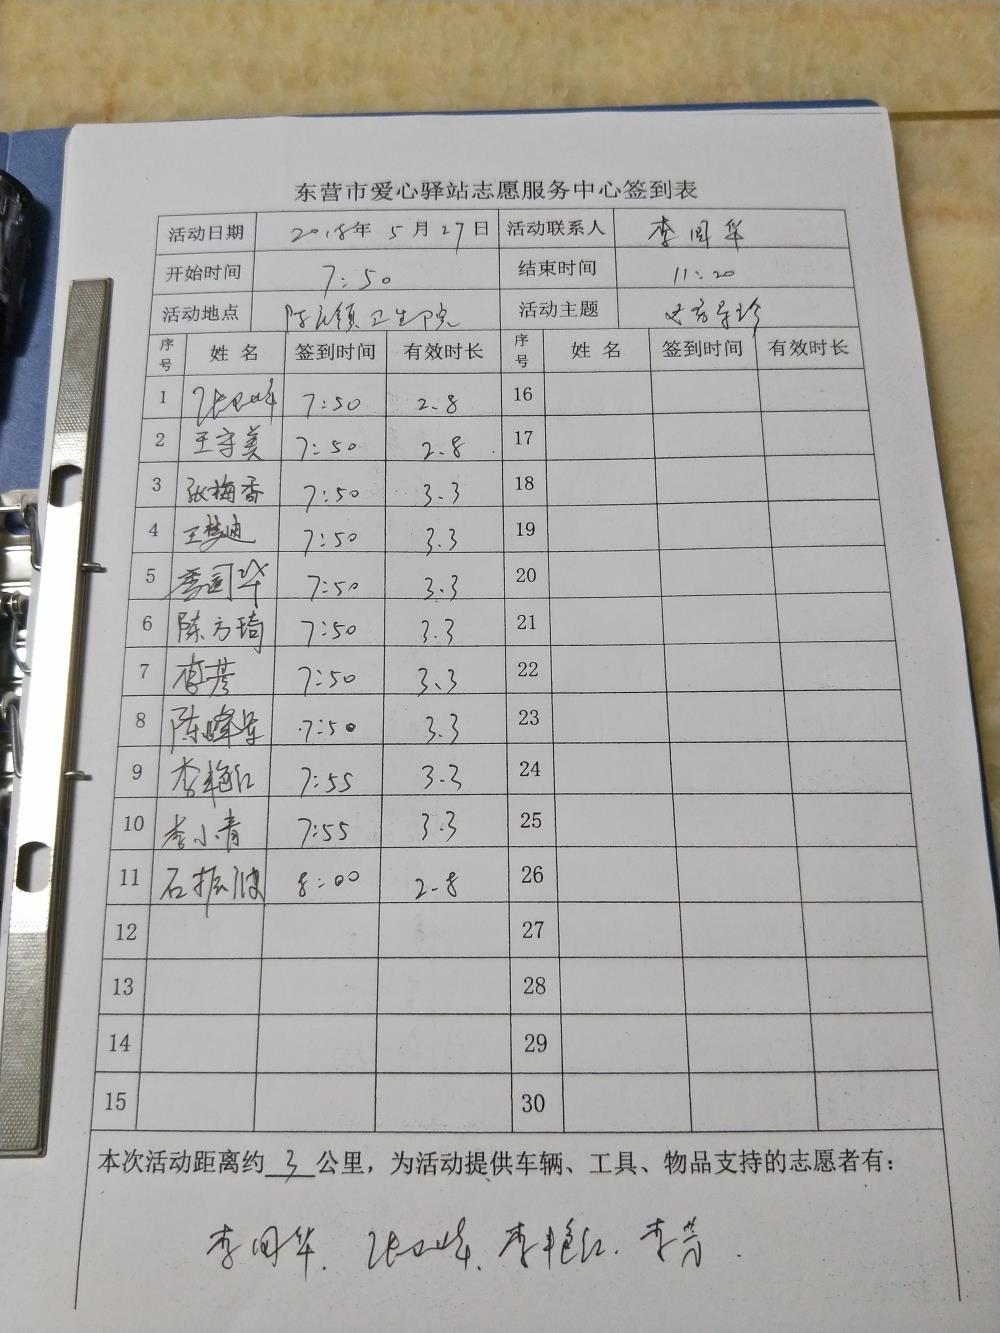 东营市爱心驿站志愿服务中心签到表
活动日期 2018年 5 月 27 日 活动联系人 李国华
开始时间 7:50 结束时间 11:20
活动地点 卫生院 活动主题
序号 姓 名 签到时间 有效时长 序号 姓 名 签到时间 有效时长
1 7:50 2.8 16
2 王守美 7:50 2.8 17
3 张梅香 7:50 3.3 18
4 王梦迪 7:50 3.3 19
5 李国华 7:50 3.3 20
6 陈方琦 7:50 3.3 21
7 7:50 3.3 22
8 陈峰军 7:50 3.3 23
9 李艳红 7:55 3.3 24
10 李小青 7:55 3.3 25
11 石振波 8:00 2.8 26
12 27
13 28
14 29
15 30
本次活动距离约 3 公里，为活动提供车辆、工具、物品支持的志愿者有：
李国华、李艳红、